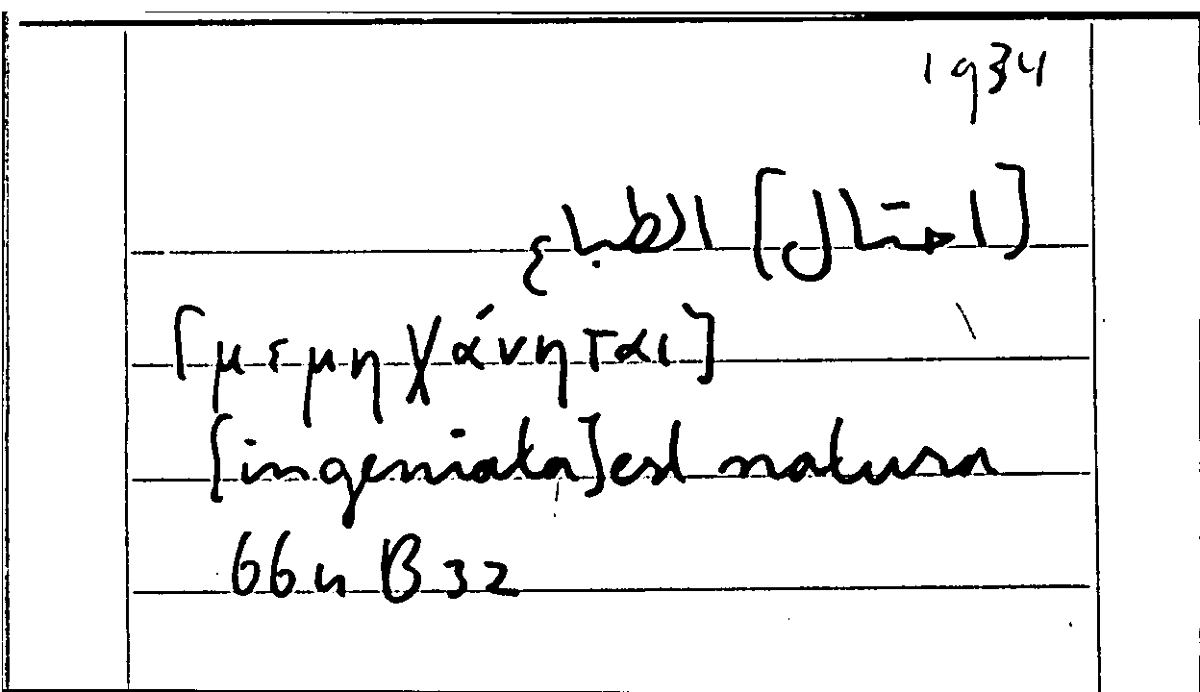 1934
[احتال] الطباع
[μεμηχάνηται]
[ingeniata] est natura
664 B 32